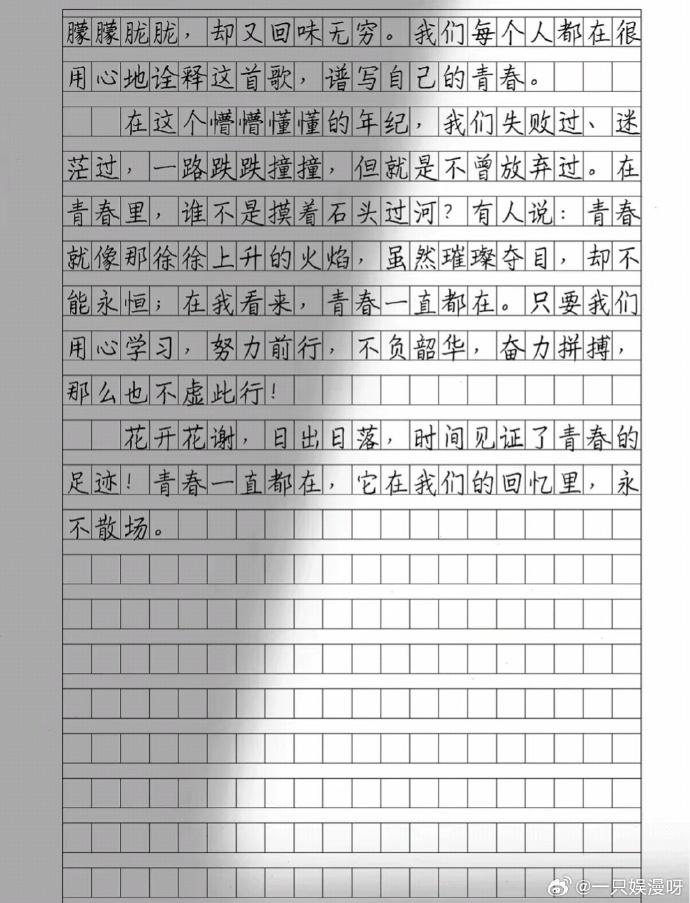 朦朦胧胧，却又回味无穷。我们每个人都在很
用心地诠释这首歌，谱写自己的青春。
在这个懵懵懂懂的年纪，我们失败过、迷
茫过，一路跌跌撞撞，但就是不曾放弃过。在
青春里，谁不是摸着石头过河？有人说：青春
就像那徐徐上升的火焰，虽然璀璨夺目，却不
能永恒；在我看来，青春一直都在。只要我们
用心学习，努力前行，不负韶华，奋力拼搏，
那么也不虚此行！
花开花谢，日出日落，时间见证了青春的
足迹！青春一直都在，它在我们的回忆里，永
不散场。
@一只娱漫呀